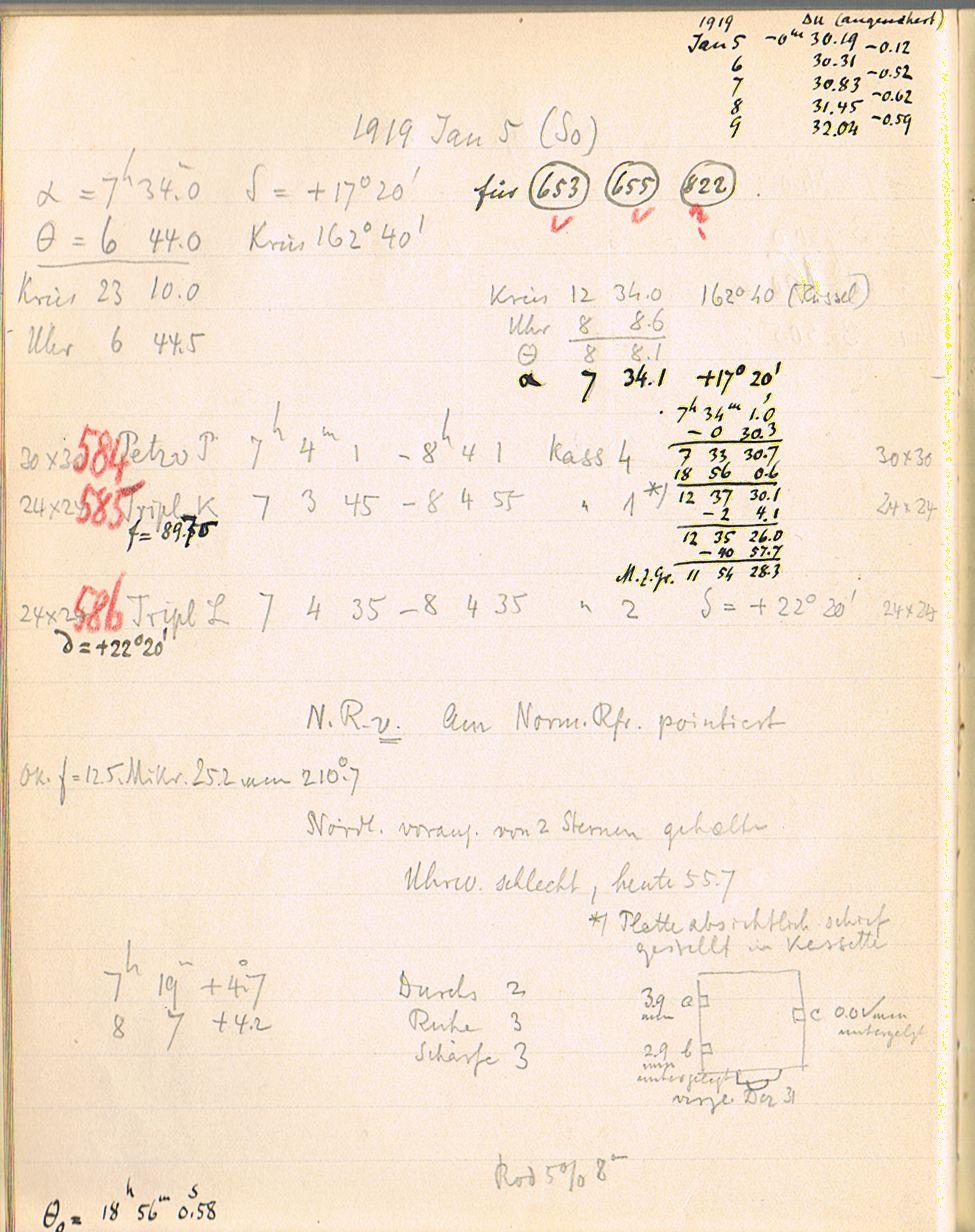 1919 Δu (angenähert)
Jan 5 -0ᵐ 30.19 -0.12
6 30.31 -0.52
7 30.83 -0.62
8 31.45 -0.59
9 32.04
1919 Jan 5 (So)
α = 7ʰ 34ᵐ.0 δ = +17° 20' für 653 655 822
θ = 6 44.0 Kreis 162° 40'
Kreis 23 10.0
Uhr 6 44.5
Kreis 12 34.0 162° 40
Uhr 8 8.6
θ 8 8.1
α 7 34.1 +17° 20'
7ʰ 34ᵐ 1.0ˢ
- 0 30.3
7 33 30.7
18 56 0.6
12 37 30.1
- 2 4.1
12 35 26.0
- 40 57.7
M.Z.Gr. 11 54 28.3
30×30 584 Petzv P 7ʰ 4ᵐ 1 - 8ʰ 4 1 Kass 4 30×30
24×24 585 Tripl. K 7 3 45 - 8 4 55 " 1 *) 24×24
f = 89.75
24×24 586 Tripl L 7 4 35 - 8 4 35 " 2 δ = + 22° 20' 24×24
δ = +22° 20'
N.R.v. Am Norm.Rfr. pointiert
Ok. f = 12.5. Mikr. 25.2 mm 210°.7
Nördl. vorang. von 2 Sternen gehalten
Uhrw. schlecht, heute 55.7
*) Platte absichtlich schief
gestellt in Kassette
7ʰ 19ᵐ +4°.7 Durchs 2
8 7 +4.2 Ruhe 3
Schärfe 3
3.9 mm a
c mm untergelegt
2.9 mm b untergelegt
Dez 31
Rod 5% 8ᵐ
θ₀ = 18ʰ 56ᵐ 0.58ˢ